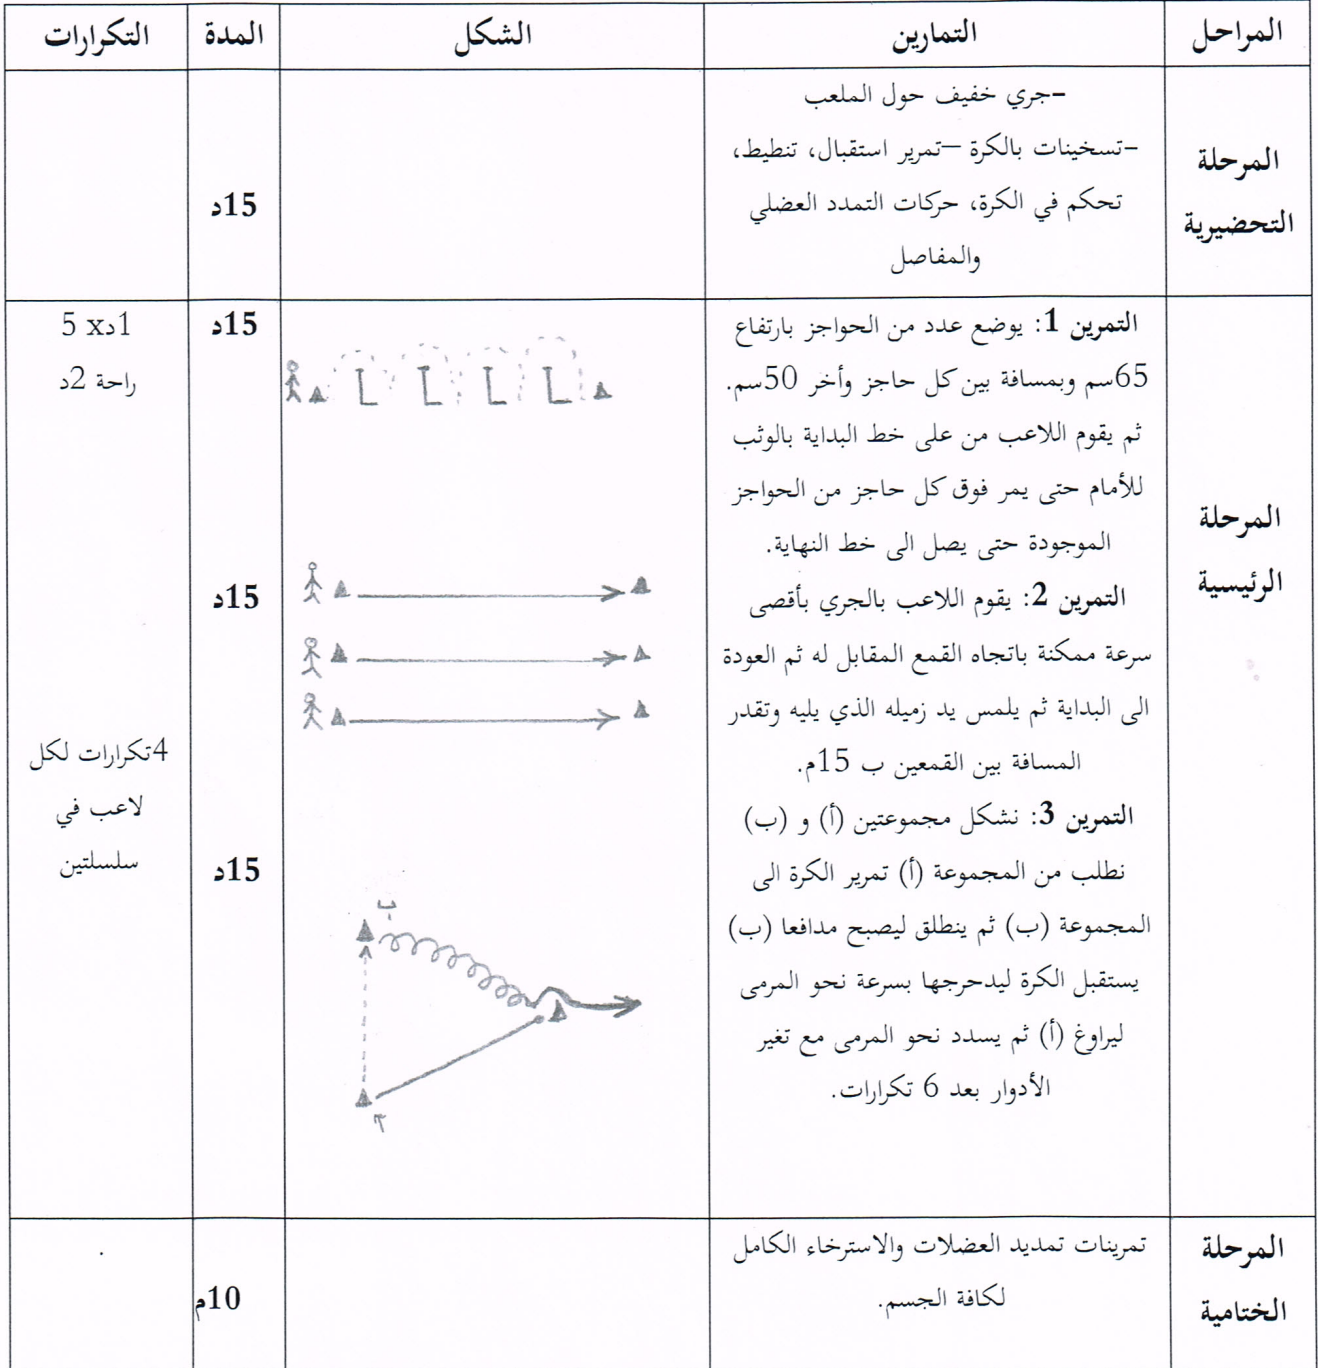 المراحل
التمارين
الشكل
المدة
التكرارات
المرحلة
التحضيرية
–جري خفيف حول الملعب
–تسخينات بالكرة –تمرير استقبال، تنطيط،
تحكم في الكرة، حركات التمدد العضلي
والمفاصل
15د
المرحلة
الرئيسية
التمرين 1: يوضع عدد من الحواجز بارتفاع
65سم وبمسافة بين كل حاجز وأخر 50سم.
ثم يقوم اللاعب من على خط البداية بالوثب
للأمام حتى يمر فوق كل حاجز من الحواجز
الموجودة حتى يصل الى خط النهاية.
التمرين 2: يقوم اللاعب بالجري بأقصى
سرعة ممكنة باتجاه القمع المقابل له ثم العودة
الى البداية ثم يلمس يد زميله الذي يليه وتقدر
المسافة بين القمعين ب 15م.
التمرين 3: نشكل مجموعتين (أ) و (ب)
نطلب من المجموعة (أ) تمرير الكرة الى
المجموعة (ب) ثم ينطلق ليصبح مدافعا (ب)
يستقبل الكرة ليدحرجها بسرعة نحو المرمى
ليراوغ (أ) ثم يسدد نحو المرمى مع تغير
الأدوار بعد 6 تكرارات.
ب
أ
15د
15د
15د
1د5 x
راحة 2د
4تكرارات لكل
لاعب في
سلسلتين
المرحلة
الختامية
تمرينات تمديد العضلات والاسترخاء الكامل
لكافة الجسم.
10م